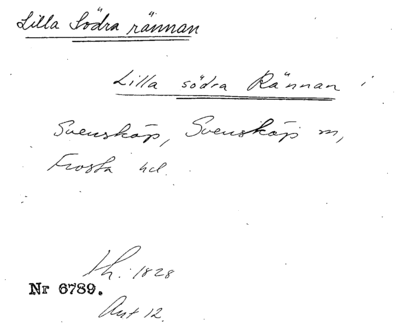 Lilla Södra rännan
Lilla södra Rännan i
Svensköp, Svensköp sn,
Frosta hd.
1828
Nr 6789.
Ant 12.